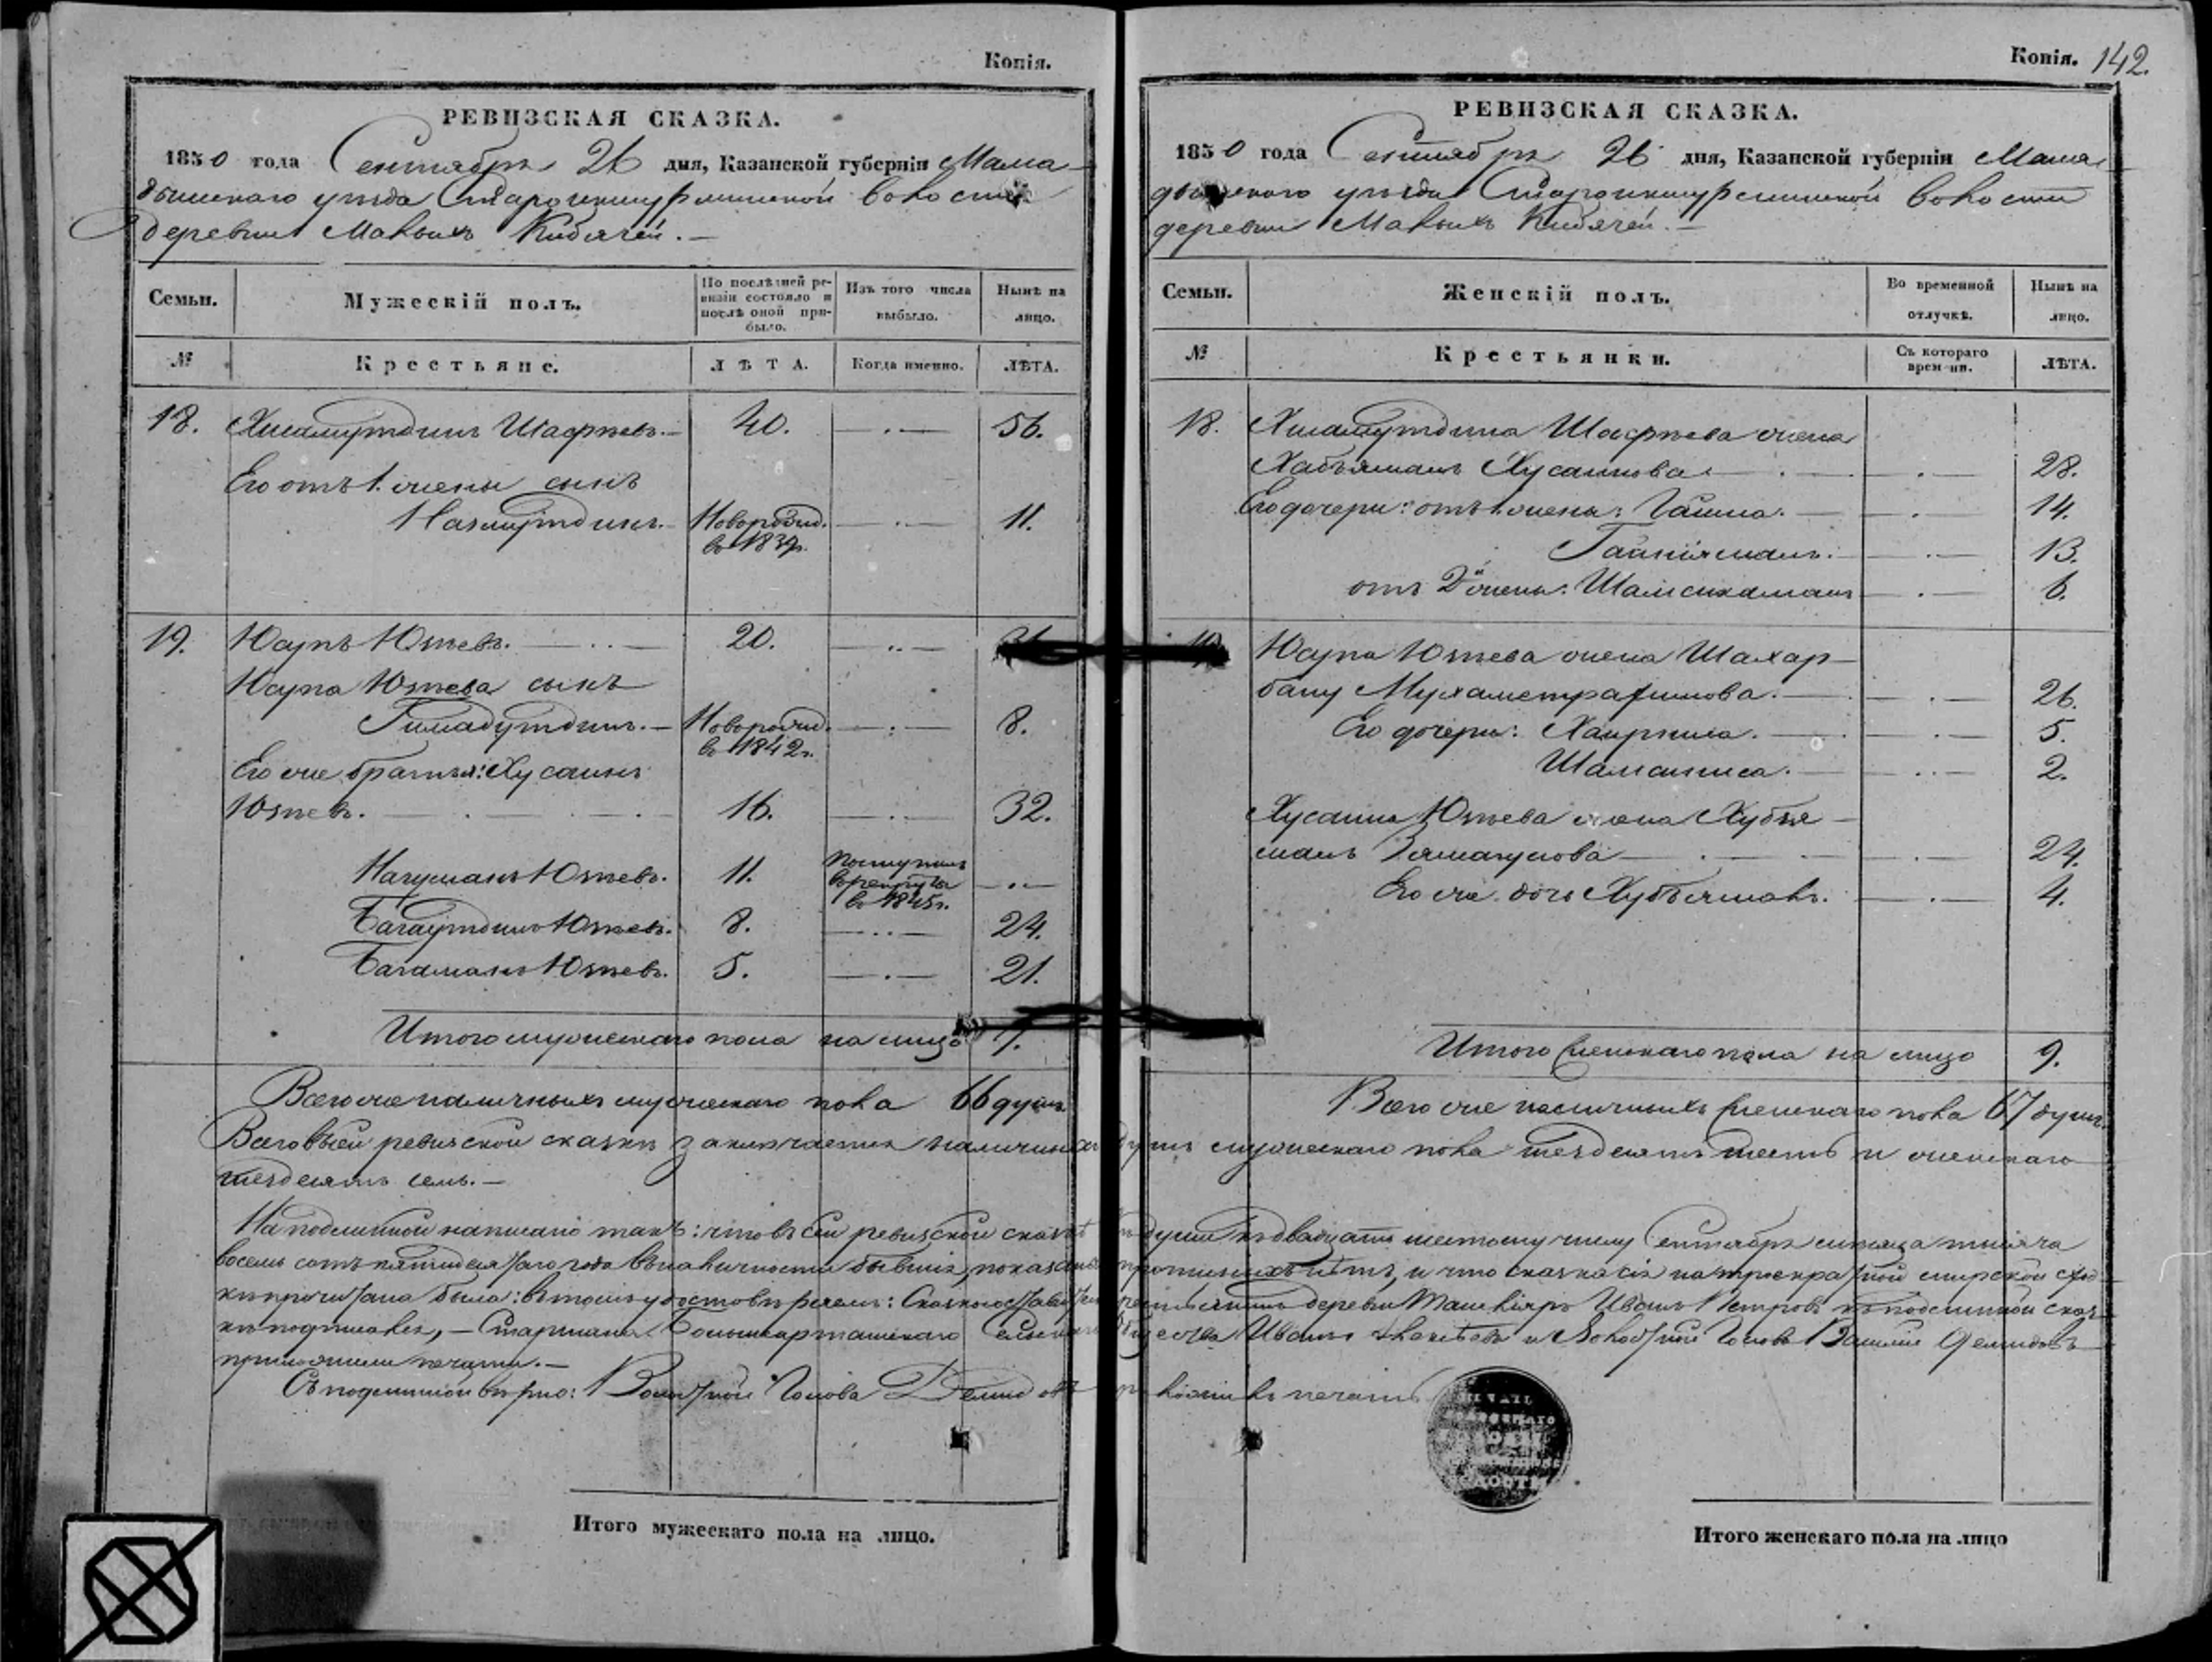 Копія.
РЕВИЗСКАЯ СКАЗКА.
1850 года Сентября 26 дня, Казанской губерніи Мама-
дышскаго уѣзда Староикшурминской волости
деревни Малыхъ Кибячей. —
Семьи. Мужескій полъ. По послѣдней ре-визіи состояло и послѣ оной при-было. Изъ того числа выбыло. Нынѣ на лицо.
№ Крестьяне. ЛѢТА. Когда именно. ЛѢТА.
18. Хисамутдинъ Шафѣевъ. — 40. — . — 56.
Его отъ 1. жены сынъ
Назмутдинъ. — Новорожд. въ 1839г. — . — 11.
19. Юсупъ Юзѣевъ. — 20. — .. —
Юсупа Юзѣева сынъ
Гимадутдинъ. — Новорожд. въ 1842г. — . — 8.
Его же братья: Хусаинъ
Юзѣевъ. — 16. — . — 32.
Нагуманъ Юзѣевъ. 11. Поступилъ въ рекруты въ 1845г. — . —
Багаутдинъ Юзѣевъ. 8. — .. — 24.
Багаманъ Юзѣевъ. 5. — . — 21.
Итого мужескаго пола на лицо 7.
Всего же наличныхъ мужескаго пола 66 душъ
Копія. 142.
РЕВИЗСКАЯ СКАЗКА.
1850 года Сентября 26 дня, Казанской губерніи Мама-
дышскаго уѣзда Староикшурминской волости
деревни Малыхъ Кибячей. —
Семьи. Женскій полъ. Во временной отлучкѣ. Нынѣ на лицо.
№ Крестьянки. Съ котораго времени. ЛѢТА.
18. Хисамутдина Шафѣева жена
Хабъямалъ Хусаинова — . — 28.
Его дочери: отъ 1. жены: Гайша. — . — 14.
Гайніямалъ. — . — 13.
отъ 2й жены: Шамсикамалъ — . — 6.
Юсупа Юзѣева жена Шахар-
бану Мухаметрахимова. — . — 26.
Его дочери: Хаирниса. — . — 5.
Шамсиниса. — .. — 2.
Хусаина Юзѣева жена Хубъя-
малъ — . — 24.
Его же дочь Хубъямалъ. — . — 4.
Итого женскаго пола на лицо 9.
Всего же наличныхъ женскаго пола 67 душъ.
Всего въ сей ревизской сказкѣ заключается наличныхъ душъ мужескаго пола шездесятъ шесть и женскаго
шездесятъ семь. —
На подлинной написано такъ: что въ сей ревизской сказкѣ души къ двадцать шестому числу Сентября мѣсяца тысяча
восемь сотъ пятидесятаго года въ наличности бывшія, показаны прописныхъ нѣтъ, и что сказка сія на троекратной мирской сход-
кѣ прочитана была: въ томъ удостовѣряемъ: деревни Ташкляръ Иванъ Петровъ къ подлинной сказ-
кѣ подписался, — Старшина Иванъ и Волостной Голова Василій Демидовъ
приложили печати. —
Съ подлинной вѣрно: Волостной Голова Демидовъ приложилъ печать
Итого мужескаго пола на лицо.
Итого женскаго пола на лицо